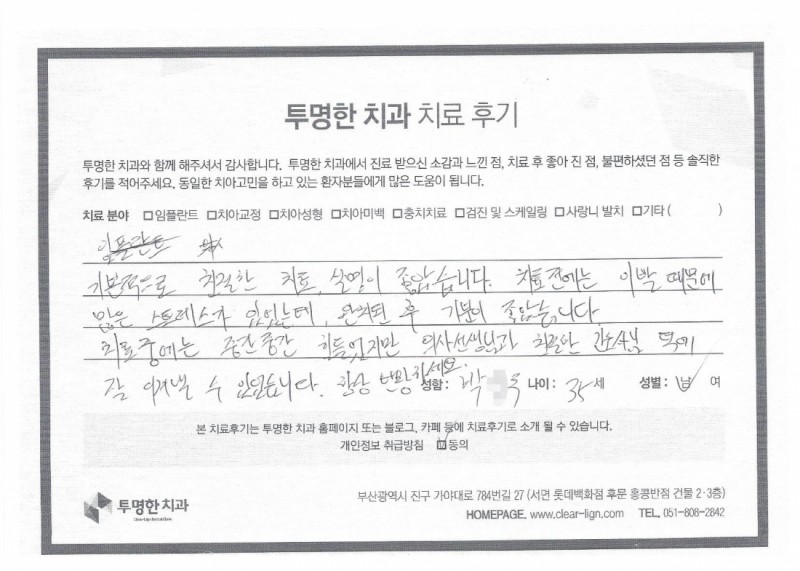 투명한 치과 치료 후기
투명한 치과와 함께 해주셔서 감사합니다. 투명한 치과에서 진료 받으신 소감과 느낀 점, 치료 후 좋아 진 점, 불편하셨던 점 등 솔직한
후기를 적어주세요. 동일한 치아고민을 하고 있는 환자분들에게 많은 도움이 됩니다.
치료 분야 □임플란트 □치아교정 □치아성형 □치아미백 □충치치료 □검진 및 스케일링 □사랑니 발치 □기타 ( )
임플란트
기본적으로 친절한 치료, 설명이 좋았습니다. 치료전에는 이빨 때문에
많은 스트레스가 있었는데, 완치된 후 기분이 좋았습니다.
치료중에는 중간중간 힘들었지만 의사선생님과 친절한 간호사님 덕에
잘 이겨낼 수 있었습니다. 항상 번창하세요.
성함: 박 욱 나이: 35 세 성별: 남 여
본 치료후기는 투명한 치과 홈페이지 또는 블로그, 카페 등에 치료후기로 소개 될 수 있습니다.
개인정보 취급방침 ☑동의
투명한 치과
부산광역시 진구 가야대로 784번길 27 (서면 롯데백화점 후문 홍콩반점 건물 2·3층)
HOMEPAGE. www.clear-lign.com TEL. 051-808-2842